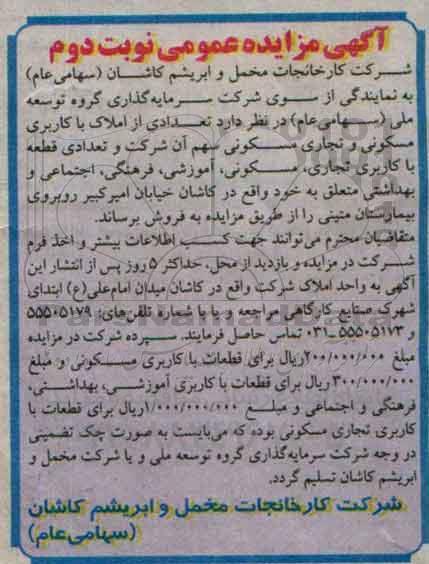 آگهی مزایده عمومی نوبت دوم
شرکت کارخانجات مخمل و ابریشم کاشان (سهامی عام)
به نمایندگی از سوی شرکت سرمایه‌گذاری گروه توسعه
ملی (سهامی عام) در نظر دارد تعدادی از املاک با کاربری
مسکونی و تجاری مسکونی سهم آن شرکت و تعدادی قطعه
با کاربری تجاری، مسکونی، آموزشی، فرهنگی، اجتماعی و
بهداشتی متعلق به خود واقع در کاشان خیابان امیرکبیر روبروی
بیمارستان متینی را از طریق مزایده به فروش برساند.
متقاضیان محترم می‌توانند جهت کسب اطلاعات بیشتر و اخذ فرم
شرکت در مزایده و بازدید از محل، حداکثر ۵ روز پس از انتشار این
آگهی به واحد املاک شرکت واقع در کاشان میدان امام علی(ع) ابتدای
شهرک صنایع کارگاهی مراجعه و یا با شماره تلفن‌های: ۵۵۵۰۵۱۷۹
و ۵۵۵۰۵۱۷۳-۰۳۱ تماس حاصل فرمایند. سپرده شرکت در مزایده
مبلغ ۲۰۰/۰۰۰/۰۰۰ریال برای قطعات با کاربری مسکونی و مبلغ
۳۰۰/۰۰۰/۰۰۰ ریال برای قطعات با کاربری آموزشی، بهداشتی،
فرهنگی و اجتماعی و مبلغ ۱/۰۰۰/۰۰۰/۰۰۰ریال برای قطعات با
کاربری تجاری مسکونی بوده که می‌بایست به صورت چک تضمینی
در وجه شرکت سرمایه‌گذاری گروه توسعه ملی و یا شرکت مخمل و
ابریشم کاشان تسلیم گردد.
شرکت کارخانجات مخمل و ابریشم کاشان
(سهامی عام)